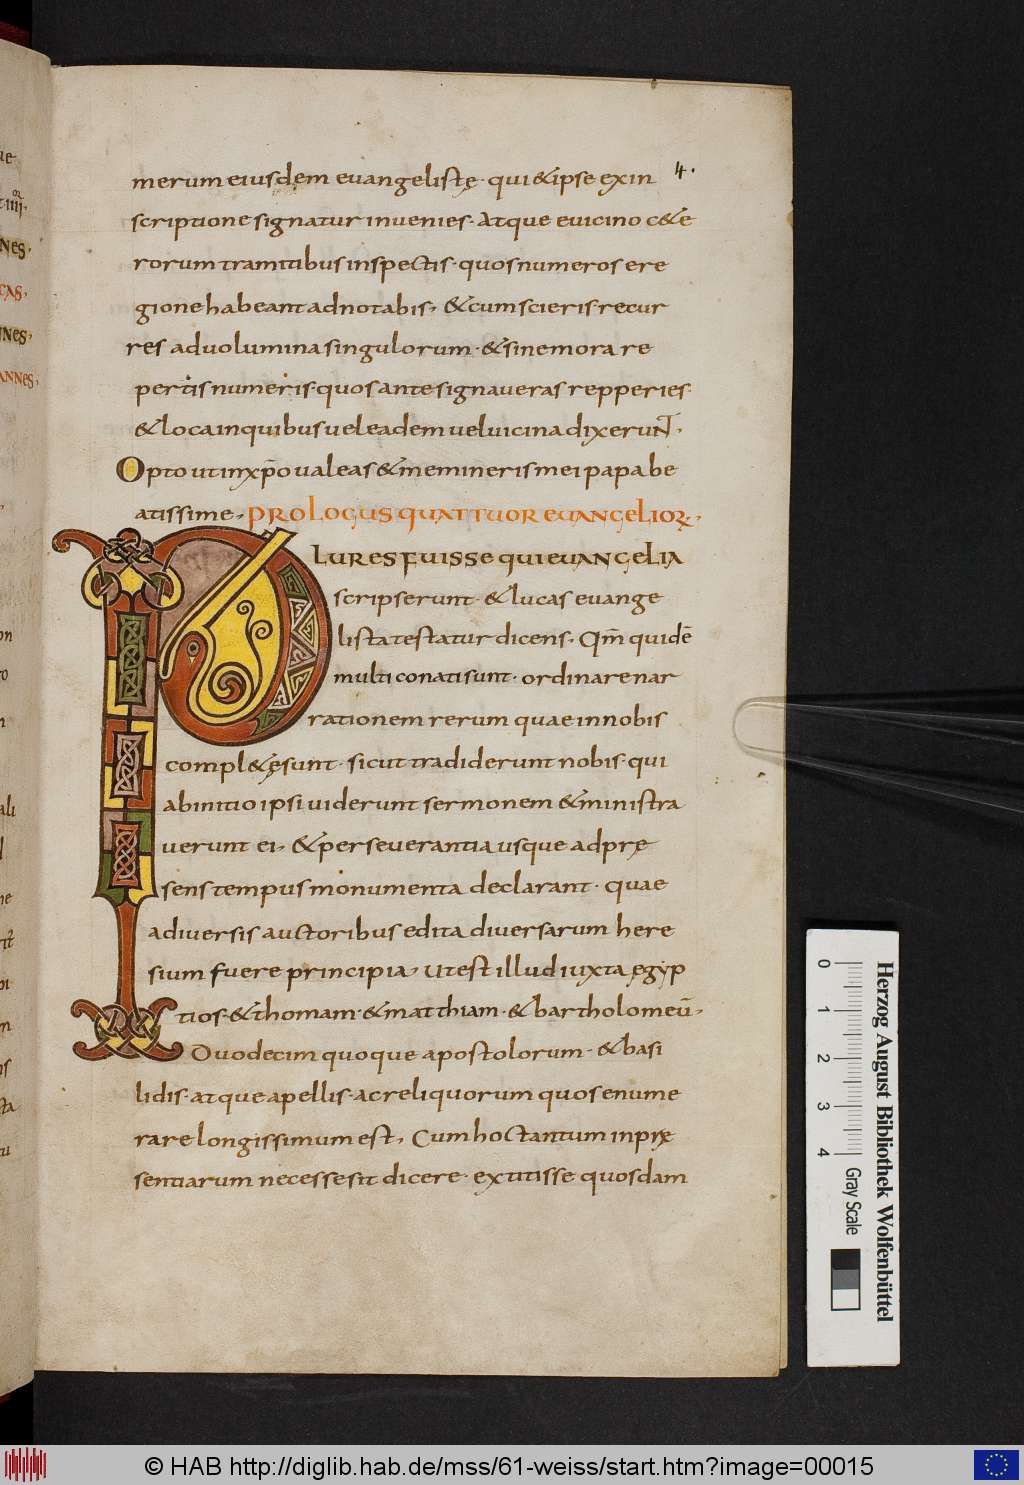 merum eiusdem evangelistę· qui & ipse ex in
4.
scriptione signatur invenies· Atque e vicino c&e
rorum tramitibus inspectis· quos numeros e re
gione habeant adnotabis· & cum scieris recur
res ad volumina singulorum· & sine mora re
pertis numeris quos ante signaveras repperies·
& loca in quibus vel eadem vel vicina dixeruNT·
Opto ut in xp̄o valeas & memineris mei papa be
atissime· PROLOGUS QUATTUOR EVANGELIOR̨·
PLURES FUISSE QUI EVANGELIA
scripserunt· & lucas evange
lista testatur dicens· Qm̄ quidē
multi conati sunt· ordinare nar
rationem rerum quae in nobis
compl&ę sunt· sicut tradiderunt nobis· qui
ab initio ipsi viderunt sermonem & ministra
verunt ei· & perseverantia usque ad prę
sens tempus monumenta declarant· quae
a diversis auctoribus edita diversarum here
sium fuere principia· Ut est illud iuxta ęgyp
tios· & thomam· & matthiam· & bartholomeū·
Duodecim quoque apostolorum· & basi
lidis· atque apellis· ac reliquorum quos enume
rare longissimum est· Cum hoc tantum in pręsę
sentiarum necesse sit dicere· extitisse quosdam
Herzog August Bibliothek Wolfenbüttel
0 1 2 3 4 Gray Scale
© HAB http://diglib.hab.de/mss/61-weiss/start.htm?image=00015